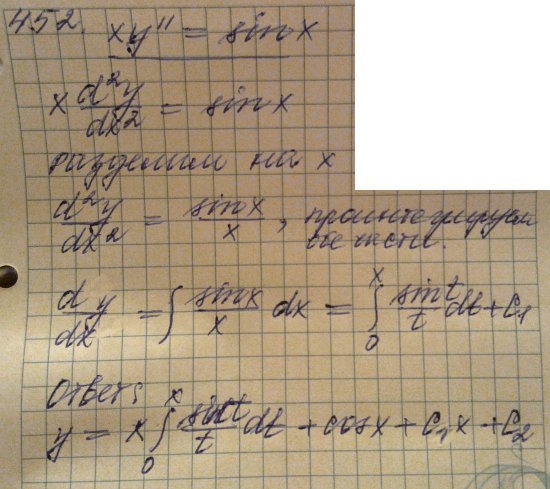 452. xy'' = sin x
x d²y/dx² = sin x
разделим на x
d²y/dx² = sin x/x, проинтегрируем
обе части.
dy/dx = ∫ sin x/x dx = ∫₀ˣ sin t/t dt + C₁
Ответ:
y = x ∫₀ˣ sin t/t dt + cos x + C₁x + C₂